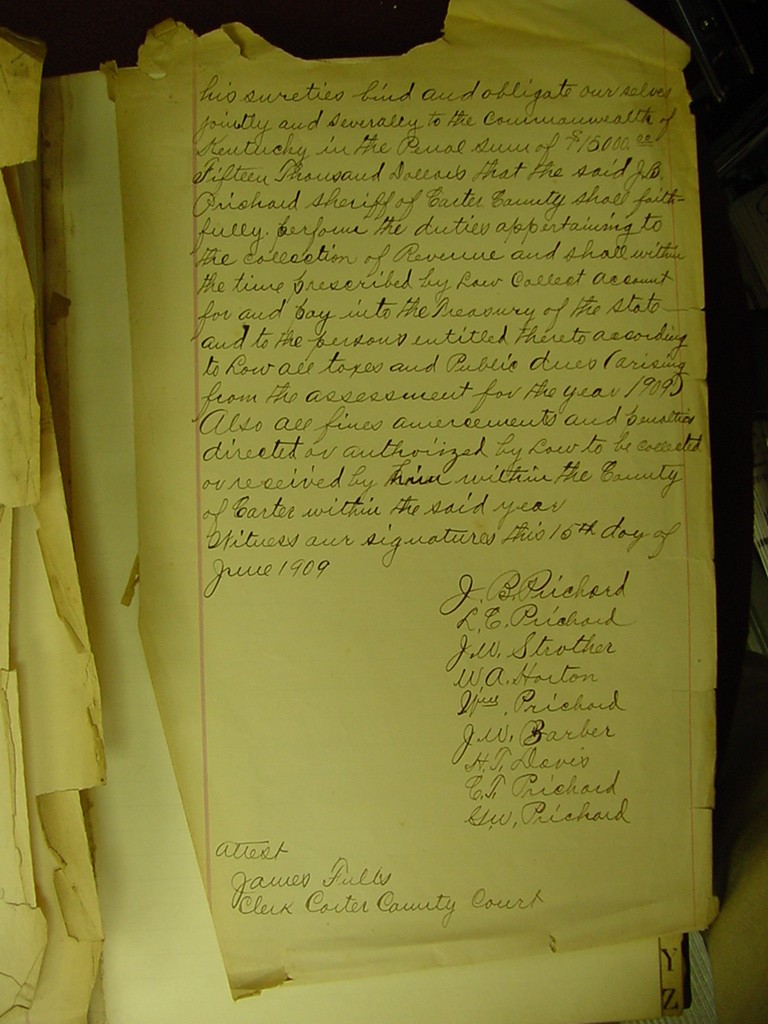 his sureties bind and obligate our selves
jointly and severally to the Commonwealth of
Kentucky in the Penal sum of $15000.00
Fifteen Thousand Dollars that the said J.B.
Prichard sheriff of Carter County shall faith-
fully. perform the duties appertaining to
the collection of Revenue and shall within
the time prescribed by Law Collect account
for and pay into the Treasury of the state
and to the persons entitled thereto according
to Law all taxes and Public dues (arising
from the assessment for the year 1909)
Also all fines amercements and penalties
directed or authorized by Law to be collected
or received by him within the County
of Carter within the said year
Witness our signatures this 15th day of
June 1909
J. B. Prichard
L. C. Prichard
J. W. Strother
W. A. Horton
Wm. Prichard
J. W. Barber
H. T. Davis
C. T. Prichard
G. W. Prichard
attest
James Fults
Clerk Carter County Court
Y
Z